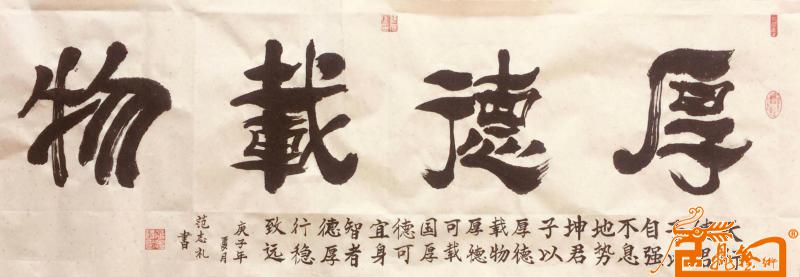 厚德載物
天行
健君
子以
自强
不息
地势
坤君
子以
厚德
载物
厚德
可载
国厚
德可
宜身
智者
德厚
行稳
致远
庚子年
夏月
范志礼
书